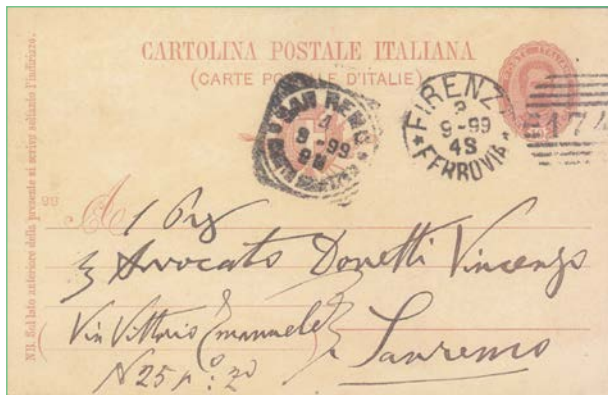 CARTOLINA POSTALE ITALIANA
(CARTE POSTALE D'ITALIE)
SAN REMO
4
9-99
FIRENZE
9-99
4S
FERROVIA
174
NB. Sul lato anteriore della presente si scrive soltanto l'indirizzo.
A
Avvocato Donetti Vincenzo
Via Vittorio Emanuele
Sanremo
N 25 p: 2º